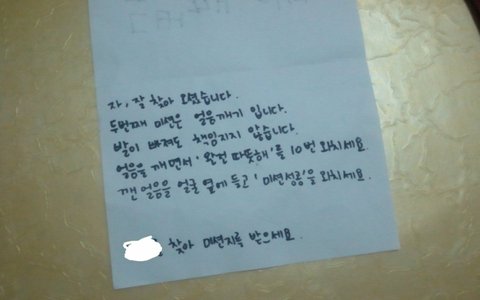 자, 잘 찾아 오셨습니다.
두번째 미션은 얼음깨기 입니다.
발이 빠져도 책임지지 않습니다.
얼음을 깨면서 '완전 따뜻해'를 10번 외치세요.
깬 얼음을 얼굴 옆에 들고 '미션성공'을 외치세요.
찾아 미션지를 받으세요.